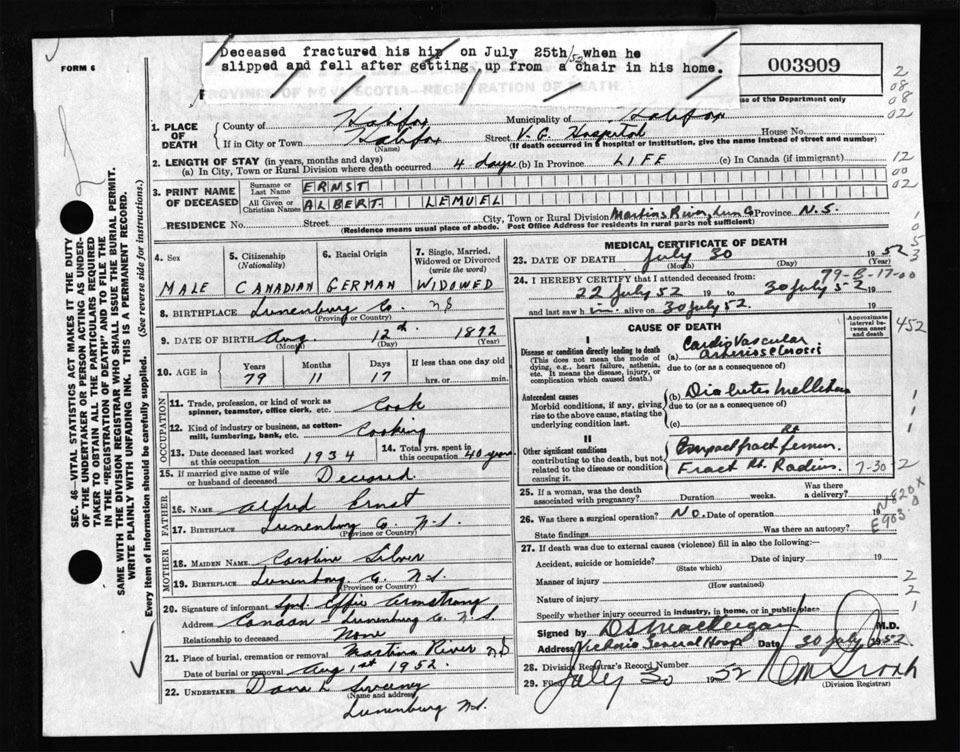 Deceased fractured his hip on July 25th/52 when he
slipped and fell after getting up from a chair in his home.
FORM 6
003909
PROVINCE OF NOVA SCOTIA—REGISTRATION OF DEATH
use of the Department only
1. PLACE OF DEATH
County of Halifax Municipality of Halifax
If in City or Town Halifax (Name) Street V. G. Hospital House No.
(If death occurred in a hospital or institution, give the name instead of street and number)
2. LENGTH OF STAY (in years, months and days)
(a) In City, Town or Rural Division where death occurred 4 days (b) In Province LIFE (c) In Canada (if immigrant)
3. PRINT NAME OF DECEASED
Surname or Last Name ERNST
All Given or Christian Names ALBERT LEMUEL
RESIDENCE No. Street City, Town or Rural Division Martins River, Lun Co Province N.S.
(Residence means usual place of abode. Post Office Address for residents in rural parts not sufficient)
4. Sex
MALE
5. Citizenship (Nationality)
CANADIAN
6. Racial Origin
GERMAN
7. Single, Married, Widowed or Divorced (write the word)
WIDOWED
8. BIRTHPLACE Lunenburg Co. NS
(Province or Country)
9. DATE OF BIRTH Aug. 12th 1872
(Month) (Day) (Year)
10. AGE in Years Months Days If less than one day old
79 11 17 hrs. or min.
OCCUPATION
11. Trade, profession, or kind of work as spinner, teamster, office clerk, etc. Cook
12. Kind of industry or business, as cotton-mill, lumbering, bank, etc. Cooking
13. Date deceased last worked at this occupation 1934
14. Total yrs. spent in this occupation 40 years
15. If married give name of wife or husband of deceased Deceased
FATHER
16. Name Alfred Ernst
17. Birthplace Lunenburg Co. N.S.
(Province or Country)
MOTHER
18. Maiden Name Caroline Silver
19. Birthplace Lunenburg Co. N.S.
(Province or Country)
20. Signature of informant Sgnd. Effie Armstrong
Address Canaan Lunenburg Co. N.S.
Relationship to deceased None
21. Place of burial, cremation or removal Martins River NS
Date of burial or removal Aug 1st 1952
22. Undertaker Dana L Sweeney
(Name and address)
Lunenburg N.S.
MEDICAL CERTIFICATE OF DEATH
23. DATE OF DEATH July 30 1952
(Month) (Day) (Year)
79-B-17-00
24. I HEREBY CERTIFY that I attended deceased from:
22 July 52 19 to 30 July 52 19
and last saw him alive on 30 July 52. 19
CAUSE OF DEATH
Approximate interval between onset and death
I
Disease or condition directly leading to death
(This does not mean the mode of dying, e.g., heart failure, asthenia, etc. It means the disease, injury, or complication which caused death.)
(a) Cardio Vascular Arteriosclerosis
due to (or as a consequence of)
Antecedent causes
Morbid conditions, if any, giving rise to the above cause, stating the underlying condition last.
(b) Diabetes Mellitus
due to (or as a consequence of)
(c)
II
Other significant conditions
contributing to the death, but not related to the disease or condition causing it.
Rt
Compound fract femur.
Fract Rt. Radius. 7-30
25. If a woman, was the death associated with pregnancy? Duration weeks. Was there a delivery?
26. Was there a surgical operation? No. Date of operation
State findings Was there an autopsy?
27. If death was due to external causes (violence) fill in also the following:—
Accident, suicide or homicide? Date of injury 19
(State which)
Manner of injury
(How sustained)
Nature of injury
Specify whether injury occurred in industry, in home, or in public place
Signed by M.D.
Address Victoria General Hosp. Date 30 July 1952
28. Division Registrar's Record Number
29. Filed July 30 1952
(Division Registrar)
SEC. 46—VITAL STATISTICS ACT MAKES IT THE DUTY
OF THE UNDERTAKER OR PERSON ACTING AS UNDER-
TAKER TO OBTAIN ALL THE PARTICULARS REQUIRED
IN THE "REGISTRATION OF DEATH" AND TO FILE THE
SAME WITH THE DIVISION REGISTRAR WHO SHALL ISSUE THE BURIAL PERMIT.
WRITE PLAINLY WITH UNFADING INK. THIS IS A PERMANENT RECORD.
Every item of information should be carefully supplied. (See reverse side for instructions.)
2
08
08
02
12
00
02
1
0
5
3
452
1
1
1
2
N820X
E903.0
2
2
1